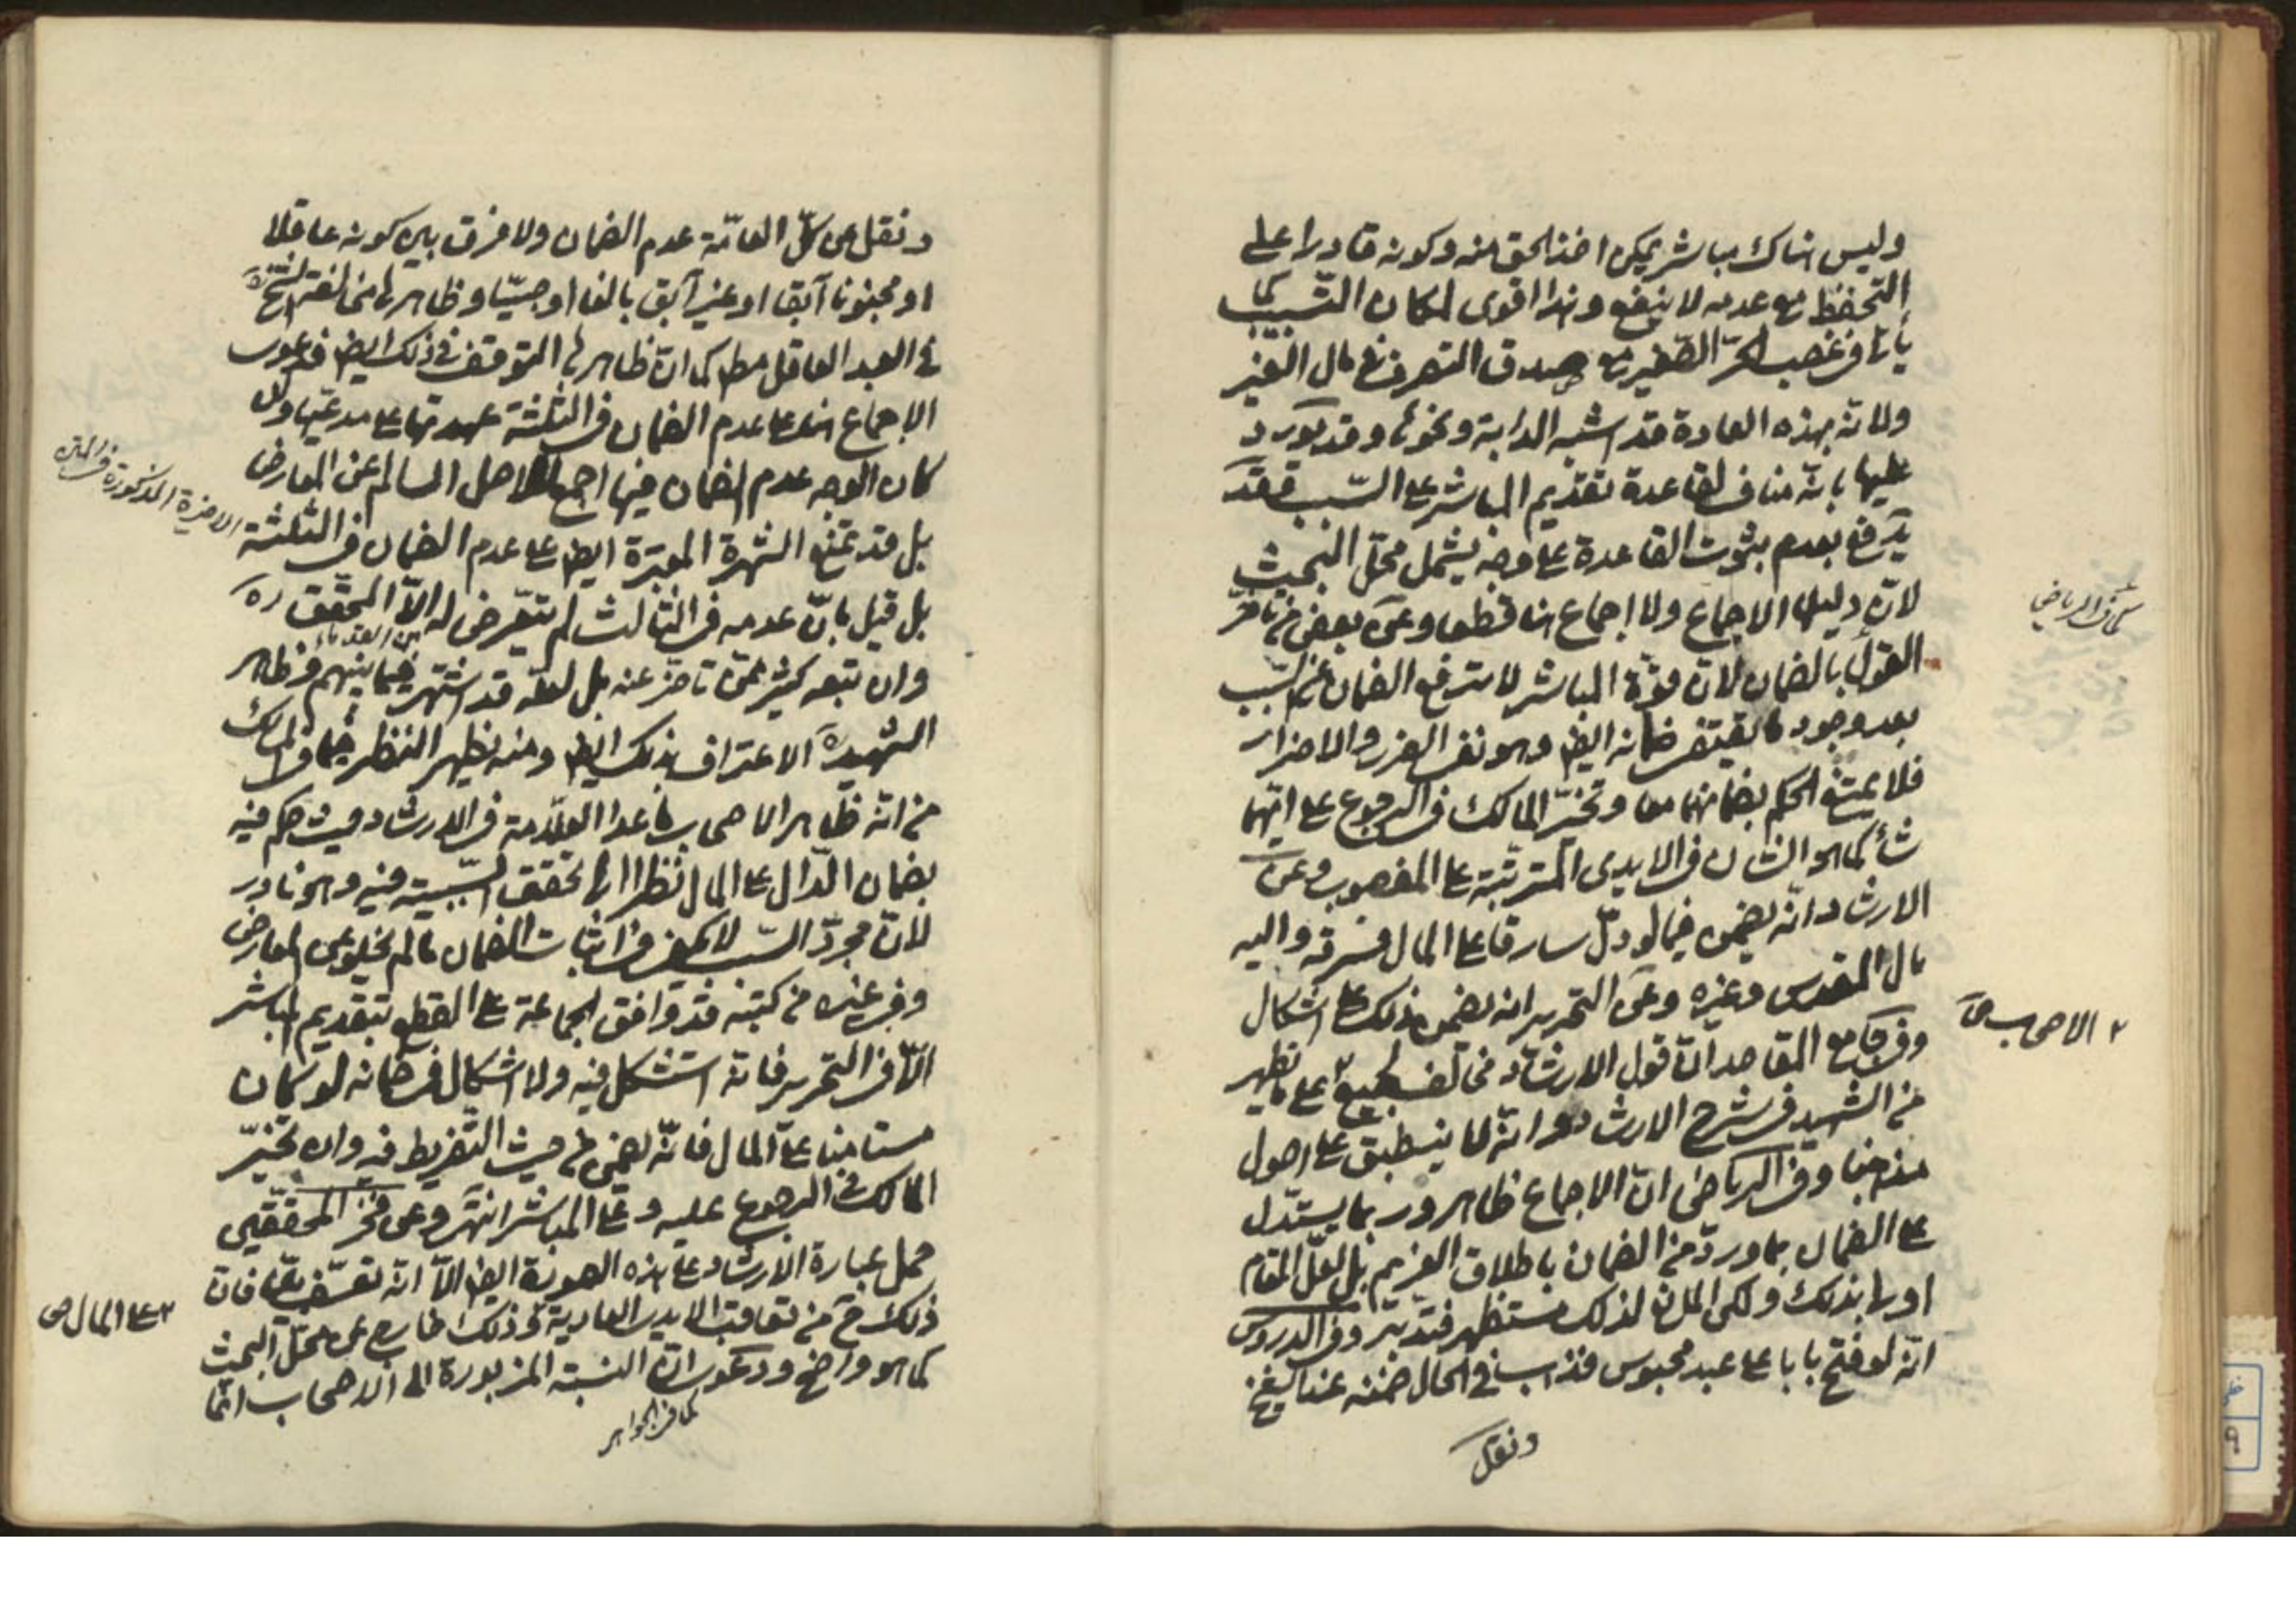 وليس هناك مباشر يمكن اخذ الحق منه وكونه قادرا على
التحفظ مع عدمه لا ينفع وهذا اقوى لمكان التسبيب كما
يأتى فى غصب الحرّ الصّغير مع صدق التصرف فى مال الغير
ولانّه بهذه العادة قد اشبه الدابة ونحوها وقد يورد
عليها بانّه مناف لقاعدة تقديم المباشر على السّبب فقد
يدفع بعدم ثبوت القاعدة على وجه يشمل محلّ البحث
لانّ دليلها الاجماع ولا اجماع هنا قطعا وعن بعض من تاخّر
كما فى الرياض
القول بالضمان لانّ قوّة المباشر لا تدفع الضمان عن السّبب
بعد وجود ما يقتضى ضمانه ايضا وهو نفى الضرر والاضرار
فلا يمتنع الحكم بضمانهما معا وتخيّر المالك فى الرجوع على ايّهما
شاء كما هو الشان فى الايدى المترتبة على المغصوب وعن
الارشاد انّه يضمن فيما لو دلّ سارقا على المال فسرقه واليه
مال المقدس وغيره وعن التحرير انه يضمن ذلك على اشكال
وفى جامع المقاصد انّ قول الارشاد مخالف لجميع على ما يظهر
٢ الاصحاب صح
من الشهيد فى شرح الارشاد وانّه لا ينطبق على اصول
مذهبنا وفى الرياض انّ الاجماع ظاهر وربما يستدل
على الضمان بما ورد من الضمان باطلاق الغريم بل لعلّ المقام
اولى بذلك ولكن الملازمة لذلك مستظهر فتدبّر وفى الدروس
انّه لو فتح بابا على عبد محبوس فذهب فى الحال ضمنه عند الشيخ
ونقل
ونقل عن كلّ العامّة عدم الضمان ولا فرق بين كونه عاقلا
او مجنونا آبقا او غير آبق بالغا او صبيّا وظاهرها مخالفة الشيخ ره
فى العبد العاقل مط كما انّ ظاهرها التوقف فى ذلك ايضا فدعوى
الاجماع هنا على عدم الضمان فى الثلثة عهدتها على مدعيها وان
كان الوجه عدم الضمان فيها اجمع للاصل السالم عن المعارض
بل قد تمنع الشهرة المعتبرة ايضا على عدم الضمان فى الثلثة
الاخيرة المذكورة فى المتن
بل قيل بانّ عدمه فى الثالث لم يتعرّض له الّا المحقّق ره
وان تبعه كثير ممّن تاخّر عنه بل لعلّه قد اشتهر فيما بينهم وظاهر
الشهيد ره الاعتراف بذلك ايضا ومنه يظهر النظر فيما فى المسالك
من انّه ظاهر الاصحاب ما عدا العلّامة فى الارشاد حيث حكم فيه
بضمان الدّال على المال نظرا الى تحقق السّببية فيه وهو نادر
لانّ مجرّد السّبب لا يكفى فى اثبات الضمان ما لم يخلو عن المعارض
وفى غيره من كتبه قد وافق الجماعة على القطع بتقديم المباشر
الّا فى التحرير فانّه استشكل فيه ولا اشكال فى ضمانه لو كان
مستامنا على المال فانّه يضمن من حيث التّفريط فيه وان تخيّر
المالك فى الرجوع عليه وعلى المباشر انتهى وعن فخر المحقّقين
حمل عبارة الارشاد على هذه الصورة ايضا الّا انّه تعسّف فان
ذلك ح من تعاقب الايدى العادية وذلك خارج عن محلّ البحث
٢ على المال صح
كما هو واضح ودعوى انّ النسبة المزبورة الى الاصحاب انّما
كما فى الجواهر